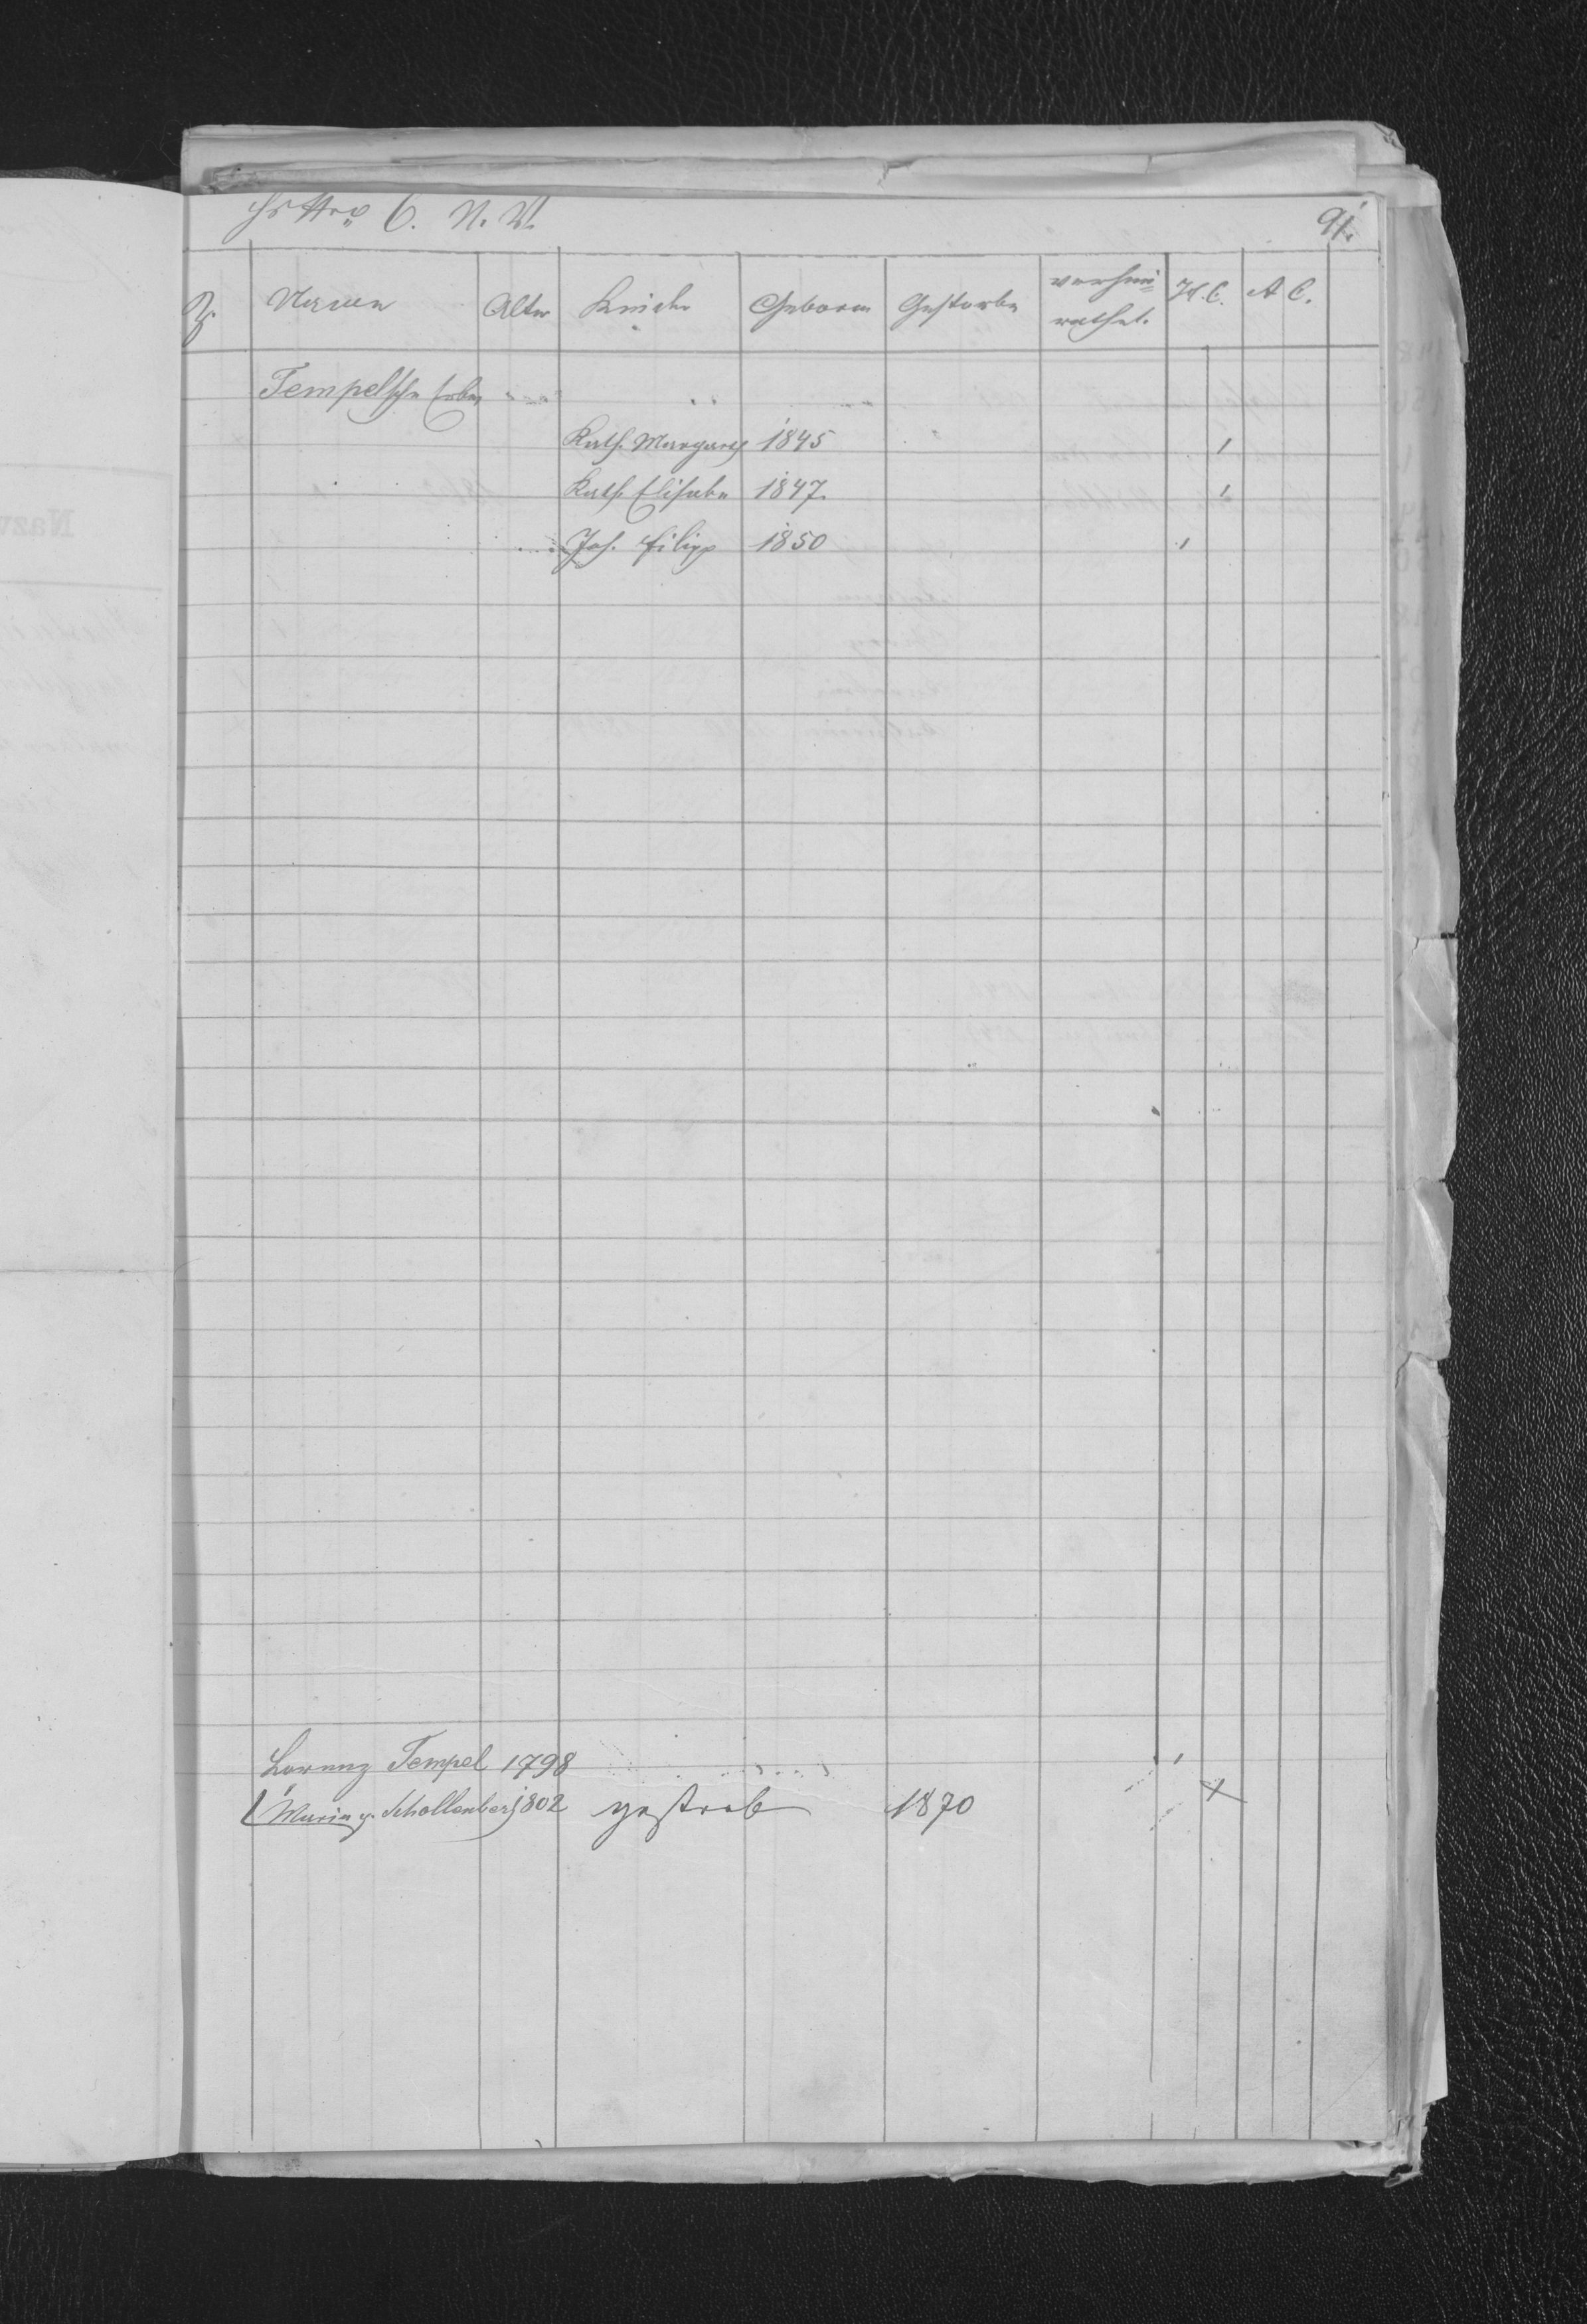 Hs Nro 6. N. W. 91.
Z. Namen Alter Kinder Geboren Gestorben verhei=
rathet. H. C. A C.
Tempelsche Erben
Kath. Margareth 1845
Kath. Elisabe 1847.
Joh. Filipp 1850
Lorenz Tempel 1798
Maria g. Schollenberg 1802 gestorb 1870